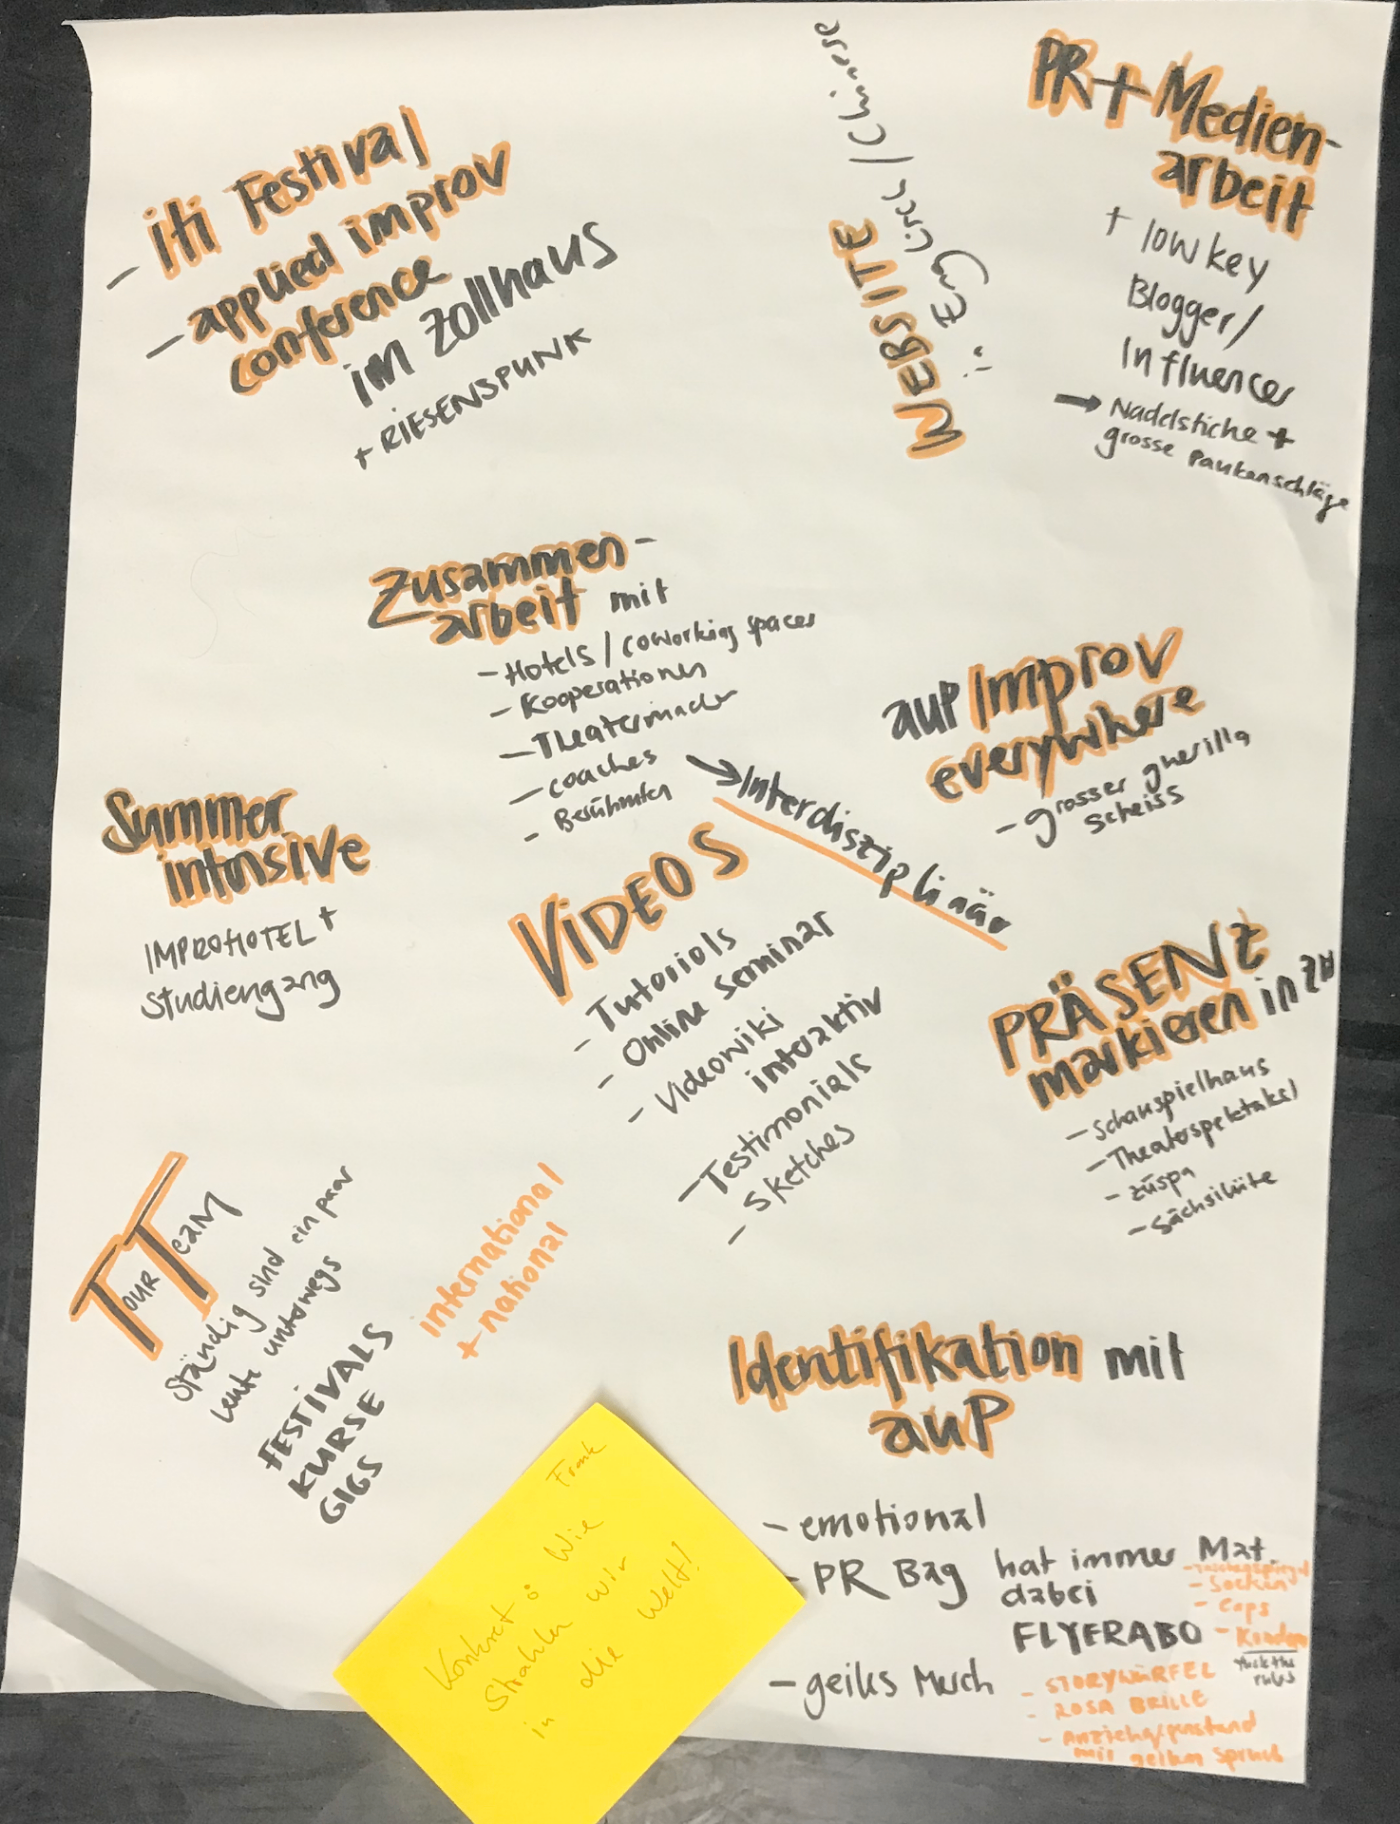 - iti Festival
- applied improv
conference
im Zollhaus
+ RIESENSPUNK
WEBSITE
Englisch / Chinese
PR + Medien-
arbeit
+ low key
Blogger/
Influencer
→ Nadelstiche +
grosse Paukenschläge
Zusammen-
arbeit mit
- Hotels / coworking spaces
- Kooperationen
- Theatermacher
- coaches
- Berühmten
→ Interdisziplinär
auP Improv
everywhere
- grosser guerilla
scheiss
Summer
intensive
IMPROHOTEL +
Studiengang
VIDEOS
- Tutorials
- Online Seminar
- Videowiki
interaktiv
- Testimonials
- Sketches
PRÄSENZ
markieren in ZH
- Schauspielhaus
- Theaterspektakel
- züspa
- Sächsilüte
TOUR TEAM
ständig sind ein paar
Leute unterwegs
FESTIVALS
KURSE
GIGS
international
+ national
Identifikation mit
auP
- emotional
- PR Bag hat immer Mat.
dabei
- Socken
- Caps
FLYERABO
- geiles Merch
fuck the
rules
- STORYWÜRFEL
- ROSA BRILLE
mit geilem Spruch
Frank
Konkret: Wie
Strahlen wir
in die Welt!